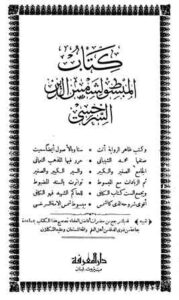 كتاب
المبسوط لشمس الدين
السرخسي
وكتب ظاهر الرواية أتت ستا وبالأصول أيضا سميت
صنفها محمد الشيباني حرر فيها المذهب النعماني
الجامع الصغير والكبير والسير الكبير والصغير
ثم الزيادات مع المبسوط تواترت بالسند المضبوط
ويجمع الست كتاب الكافي للحاكم الشهيد فهو الكافي
أقوى شروحه الذي كالشمس مبسوط شمس الأمة السرخسي
دار المعرفة
بيروت - لبنان